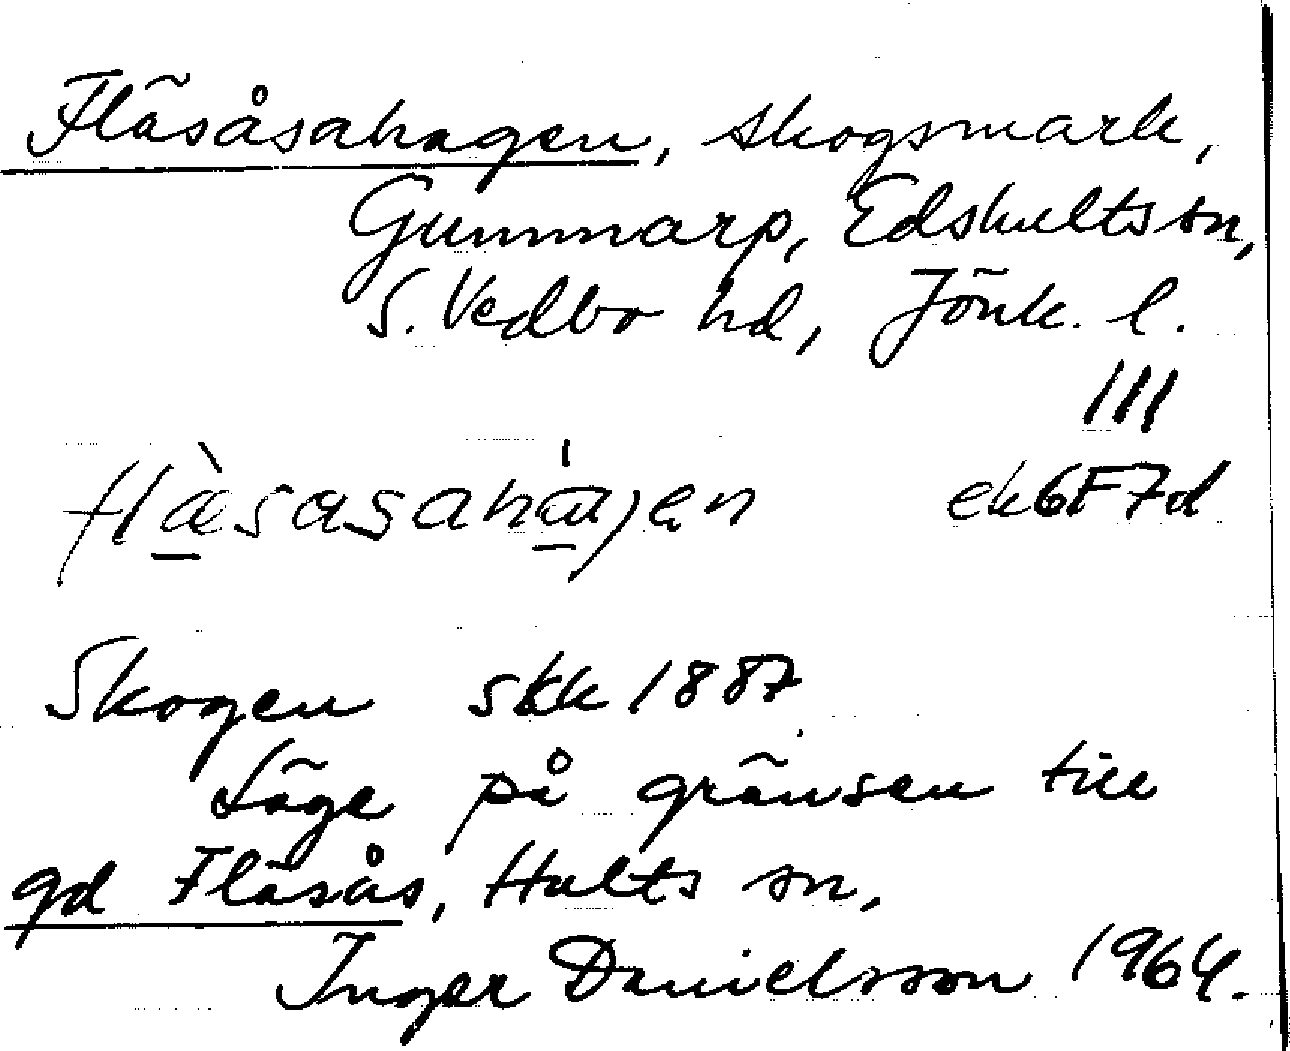 Fläsåsahagen, skogsmark,
Gummarp, Edshults sn,
S. Vedbo hd, Jönk. l.
111
ek 6F7d
Skogen skk 1887
Läge på gränsen till
gd Fläsås, Hults sn,
Inger Danielsson 1964.